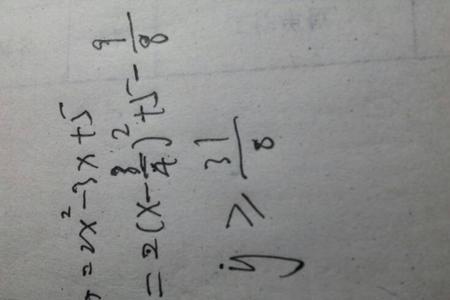 y = 2x² - 3x + 5
= 2(x - 3/4)² + 5 - 9/8
y ≥ 31/8